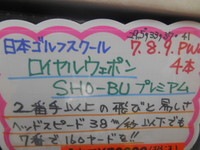 日本ゴルフスクール
7.8.9.PW
4本
ロイヤルウェポン
SHO-BU プレミアム
2番手以上の飛びと易しさ
ヘッドスピード38m/秒以下でも
7番で160ヤード!!